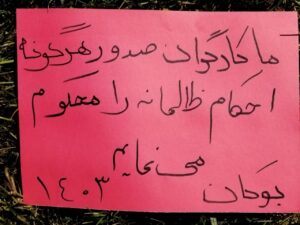 ما کارگران صدور هرگونه
احکام ظالمانه را محکوم
می نمایم
بوکان ۱۴۰۳